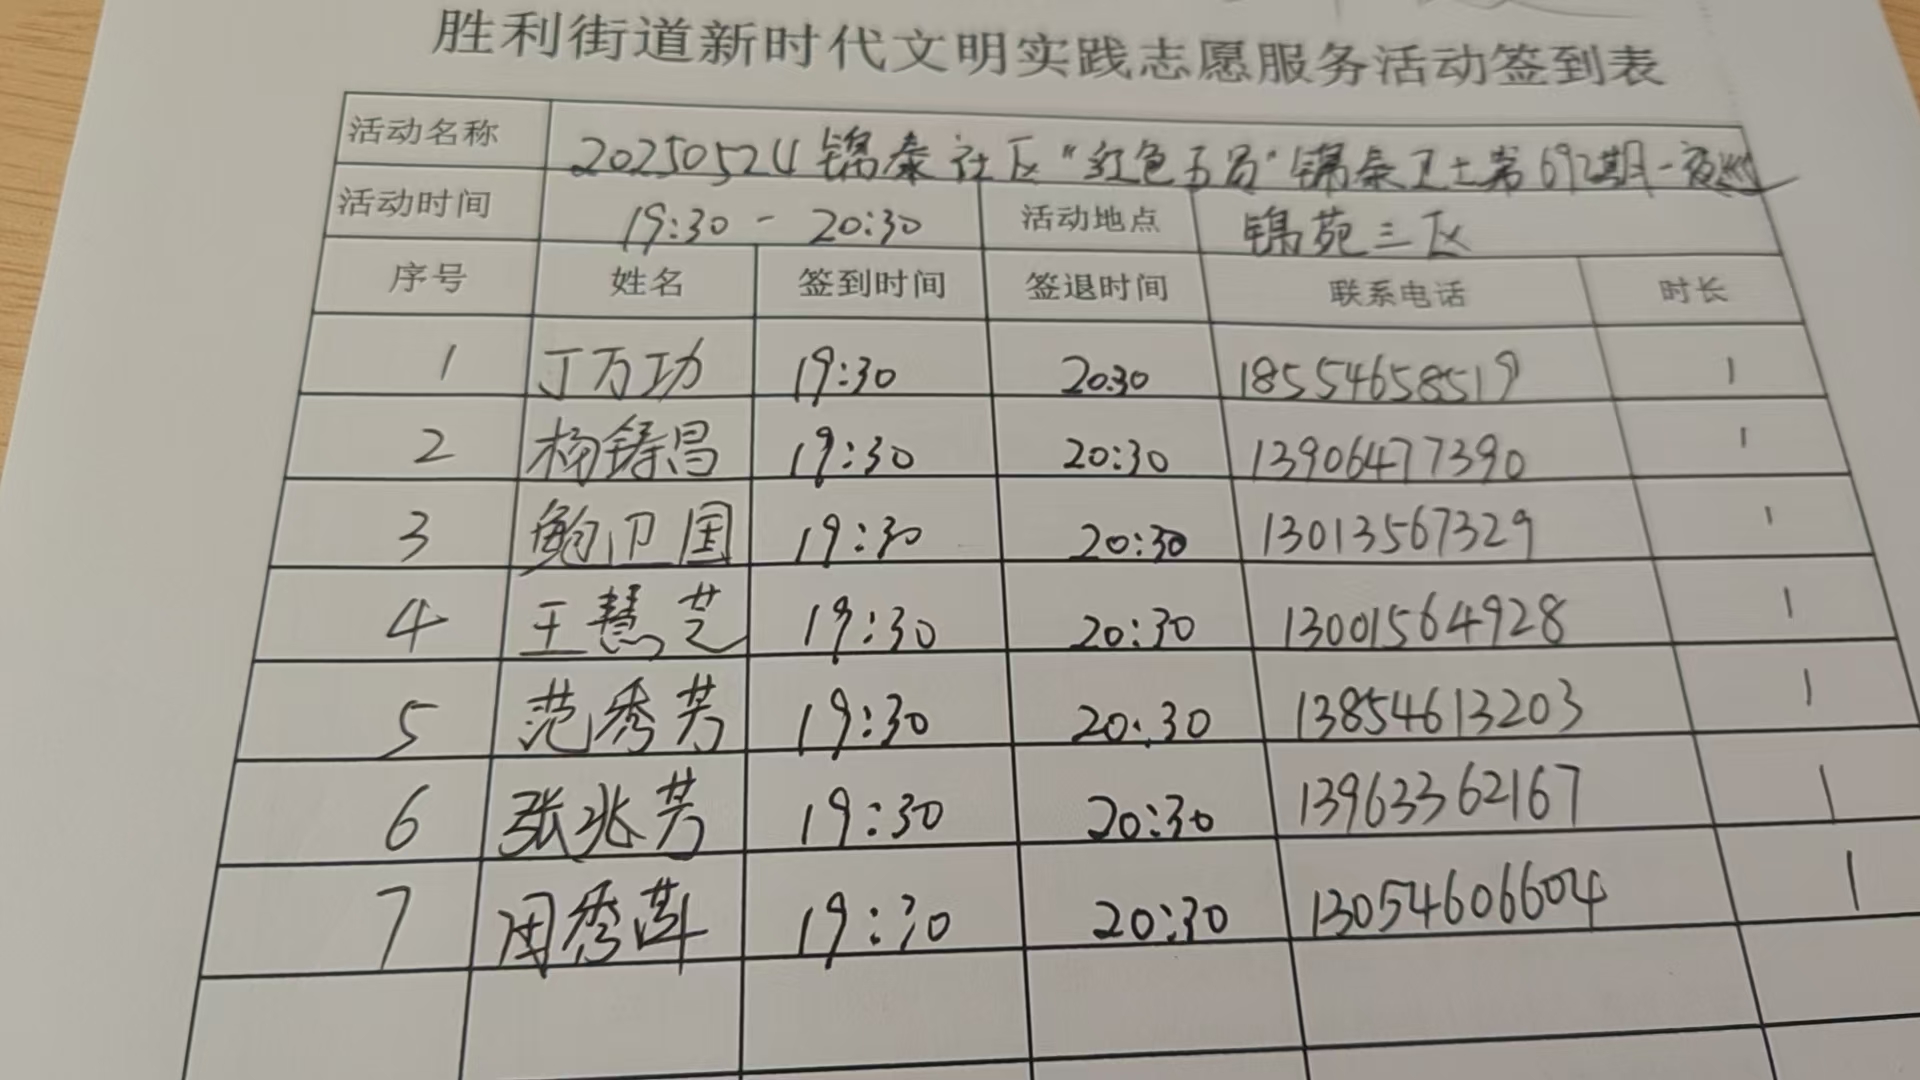 胜利街道新时代文明实践志愿服务活动签到表
活动名称 20250524锦泰社区“红色五员”锦泰卫士第692期-夜巡
活动时间 19:30 - 20:30 活动地点 锦苑三区
序号 姓名 签到时间 签退时间 联系电话 时长
1 丁万功 19:30 20:30 18554658519 1
2 杨铸昌 19:30 20:30 13906477390 1
3 鲍卫国 19:30 20:30 13013567329 1
4 王慧芝 19:30 20:30 13001564928 1
5 范秀芳 19:30 20:30 13854613203 1
6 张兆芳 19:30 20:30 13963362167 1
7 周秀 19:30 20:30 13054606604 1